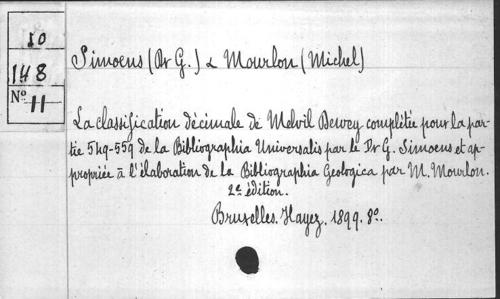 10
148
Nº 11
Simoens (Dr G.) & Mourlon (Michel)
La classification décimale de Melvil Dewey complétée pour la par-
tie 549-559 de la Bibliographia Universalis par le Dr G. Simoens et ap-
propriée à l'élaboration de la Bibliographia Geologica par M. Mourlon.
2e édition.
Bruxelles. Hayez. 1899. 8o.